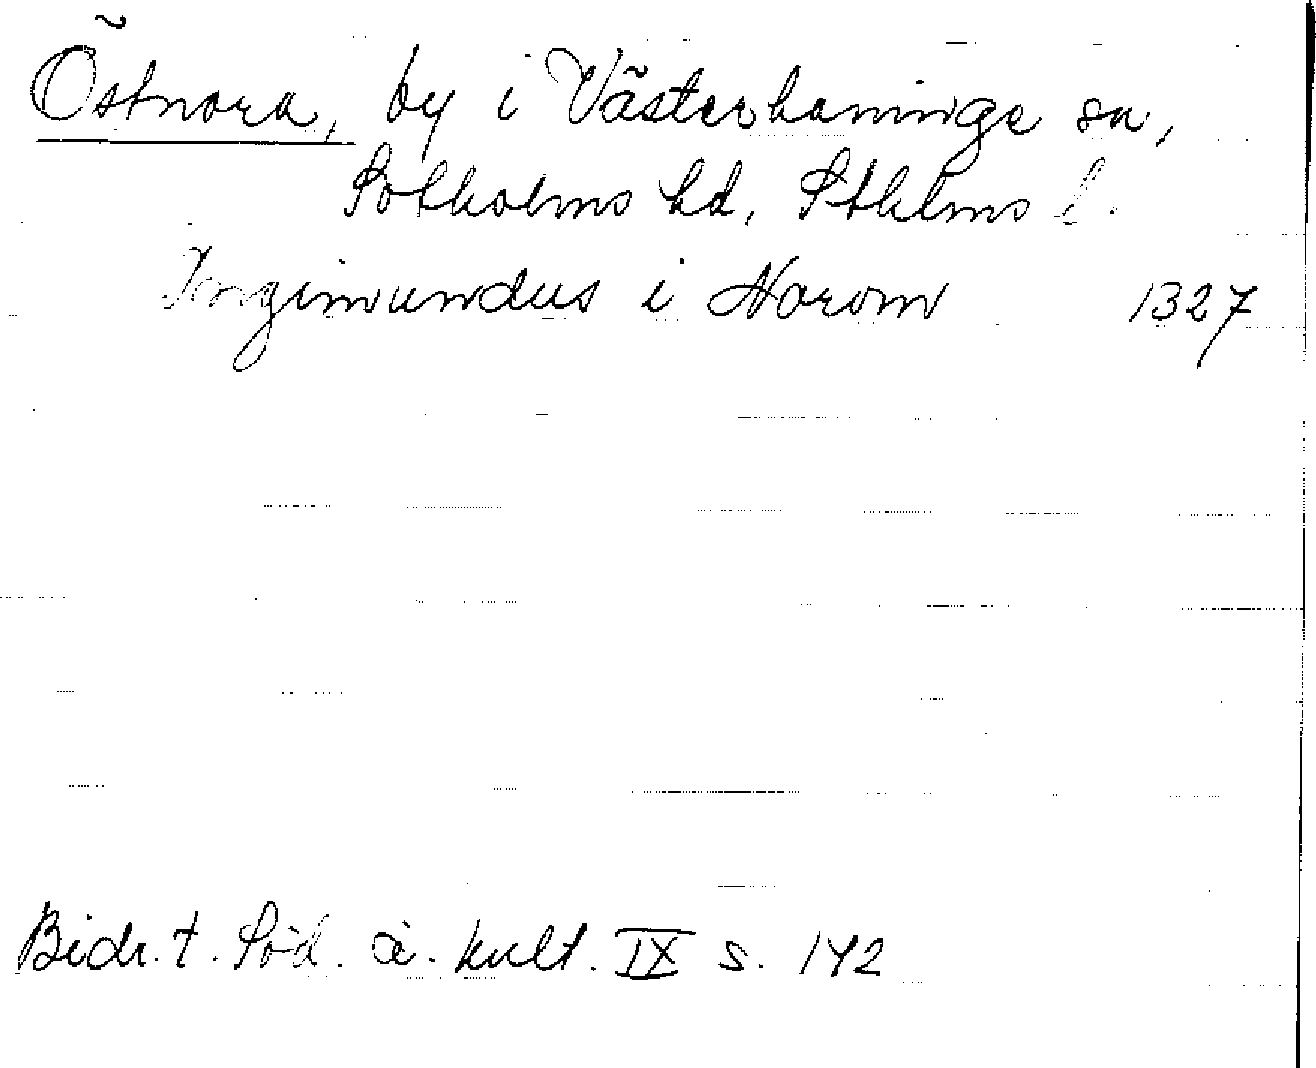 Östnora, by i Västerhaninge sn,
Sotholms hd, Sthlms l.
Ingimundus i Norom 1327
Bidr. t. Söd. ä. kult. IX s. 142